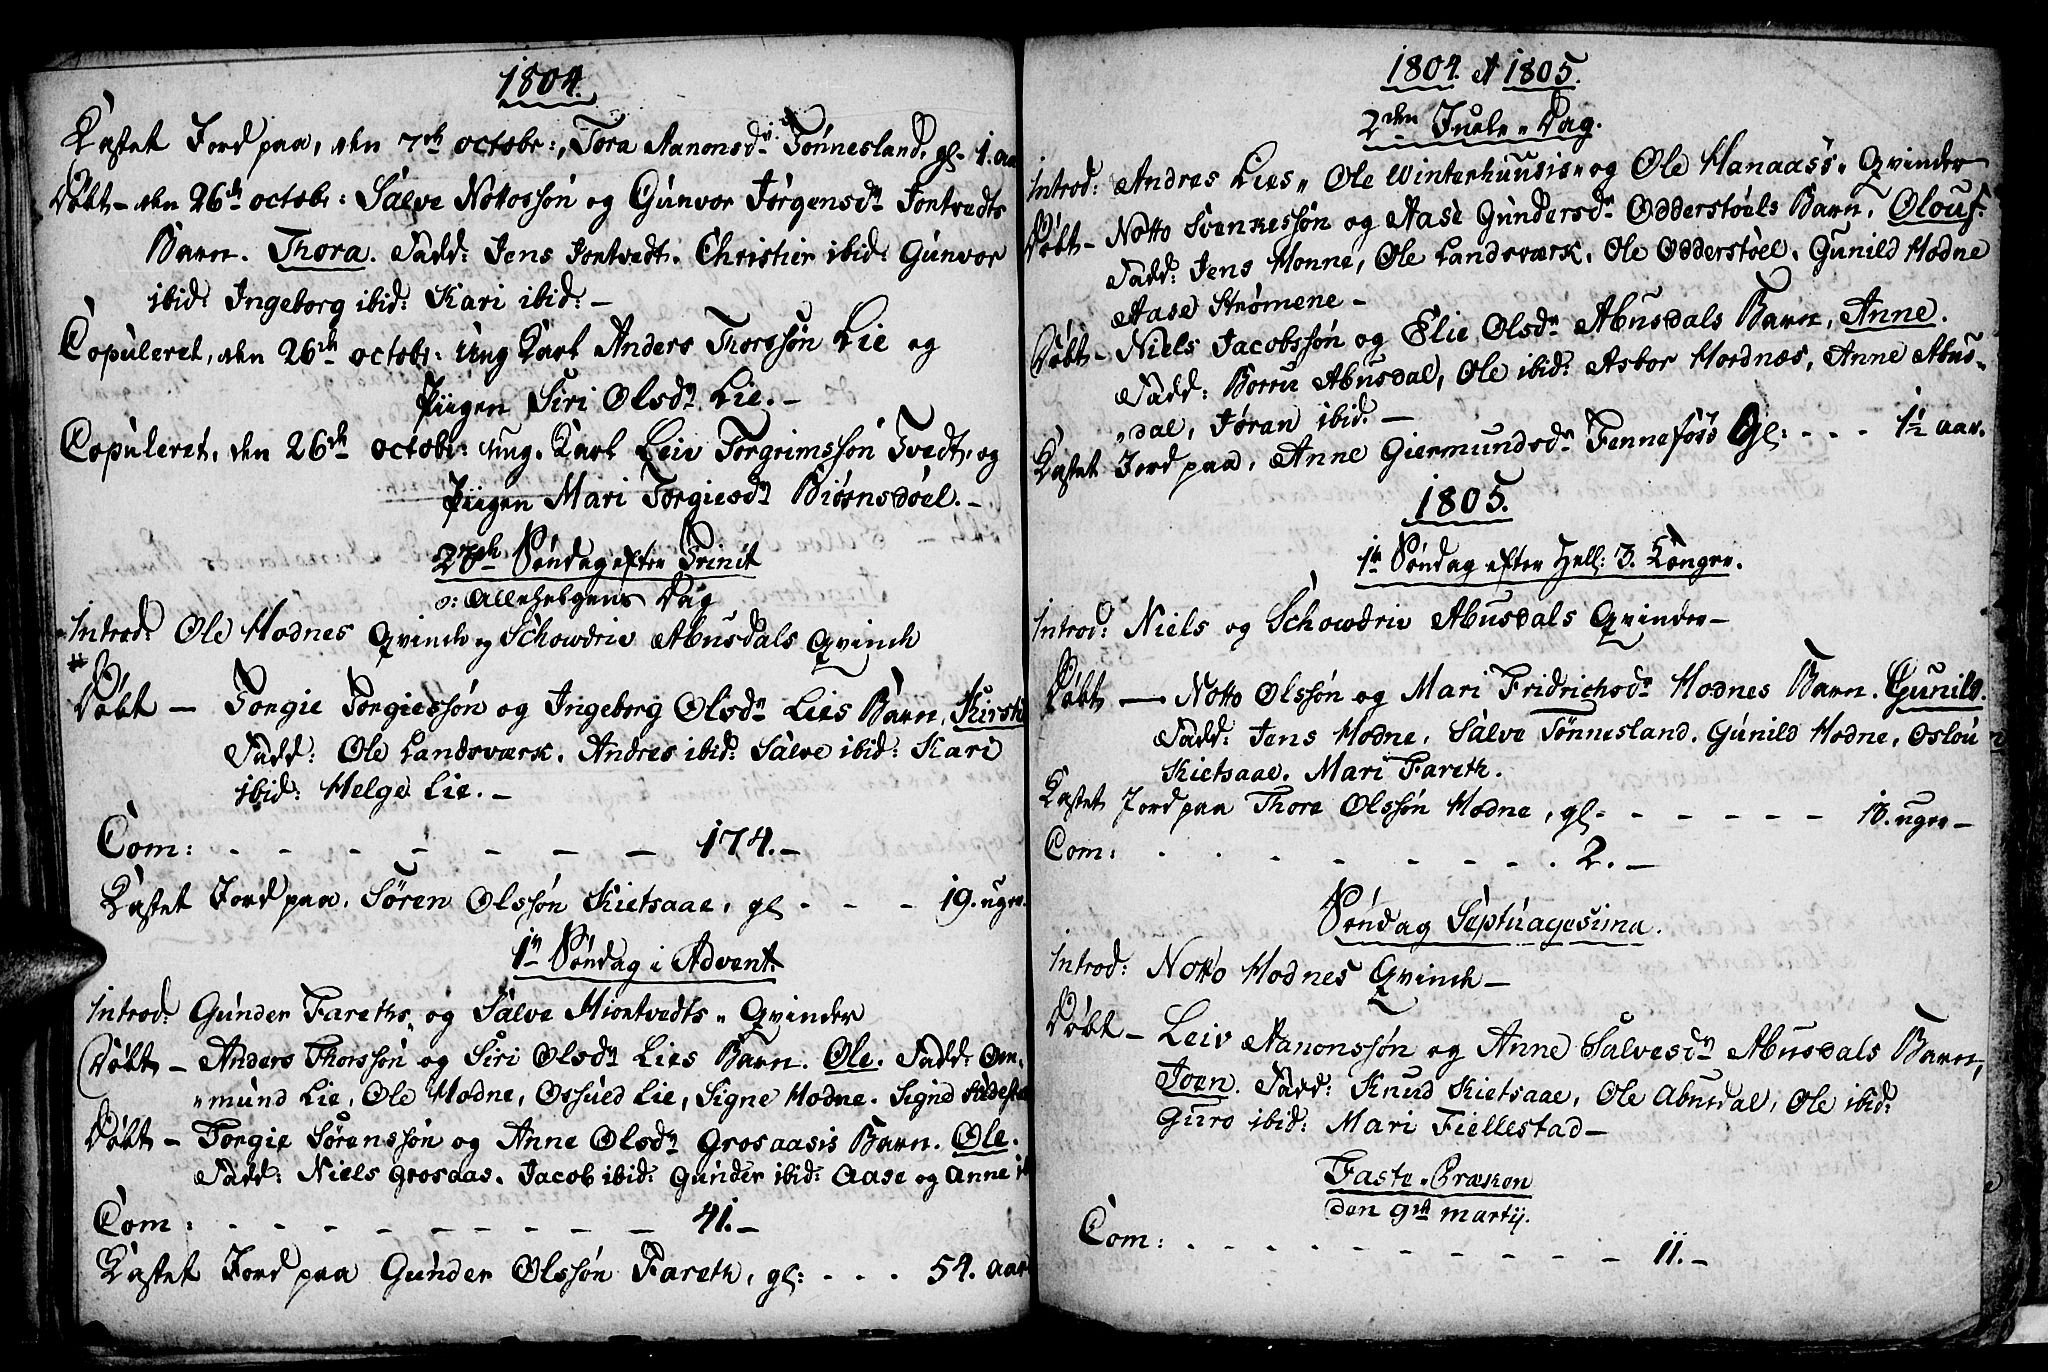 1804.
Kastet Jord paa, den 7de octobr:, Tora Aanonsdr Tönnesland, gl. 1. aar
Döbt – den 26de octobr: Salve Nottossön og Gunvor Jörgensdr Jontvedts
Barn. Thora. Fadd: Jens Jontvedt. Christier ibid: Gunvor
ibid: Ingeborg ibid: Kari ibid: –
Copuleret, den 26de octobr: Ung Karl Anders Thorssön Lie og
Piigen Siri Olsdr Lie. –
Copuleret, den 26de octobr: ung. Karl Leiv Torgrimssön Tvedt, og
Piigen Mari Torgiesdr Biörnsdöel. –
Söndag efter Trinit
o: Allehelgens Dag
Introd: Ole Hodnes Qvinde og Schowdriv Abusdals Qvinde
Döbt – Torgie Torgiessön og Ingeborg Olsdr Lies Barn, Kirsti
Fadd: Ole Landsværk. Andres ibid: Salve ibid: Kari
ibid: Helge Lie. –
Com: - - - - - - - 174. –
Kastet Jord paa. Sören Olssön Kietsaae, gl - - - 19. uger.
1te Söndag i Advent.
Introd: Gunder Fareths og Salve Miontvedts Qvinder
Döbt – Anders Thorssön og Siri Olsdr Lies Barn. Ole. Fadd: Om-
mund Lie, Ole Hodne, Ossued Lie, Signe Hodne. Signe
Döbt – Torgie Sörenssön og Anne Olsdr Grosaasis Barn. Ole.
Fadd: Niels Grosaas. Jacob ibid: Gunder ibid: Aase og Anne
Com: - - - - - - - - - - 41. –
Kastet Jord paa Gunder Olssön Fareth, gl: . . . 54. aar
1804. et 1805.
2den Juele-Dag.
Introd: Andres Lies, Ole Winterhuusis og Ole Hanaass. Qvinder
Döbt – Notto Svenkessön og Aase Gundersdr Odderstöels Barn. Olouf.
Fadd: Jens Honne, Ole Landsværk. Ole Odderstöel. Gunild Hodne
Aase Strömene –
Döbt – Niels Jacobssön og Elie Olsdr Abusdals Barn, Anne.
Fadd: Borru Abusdal, Ole ibid: Asbor Hordnæs, Anne Abus-
dal, Jöran ibid. –
Kastet Jord paa, Anne Giermundsdr Fennefoss Gl: - - - 1½ aar.
1805.
1te Söndag efter Hell: 3. Konger.
Introd: Niels og Schowdriv Abusdals Qvinder –
Döbt — Notto Olssön og Mari Fridrichsdr Hodnes Barn. Gunild.
Fadd: Jens Hodne, Salve Tönnesland. Gunild Hodne, Oslou
Kietsaae. Mari Fareth.
Kastet Jord paa Thore Olssön Hodne, gl. - - - - - - 13. uger –
Com: . . - - - - - - . 2. –
Söndag Septuagesima.
Introd: Notto Hodnes Qvinde –
Döbt – Leiv Aanonssön og Anne Salvesdr Abusdals Barn,
Joen. Fadd: Knud Kietsaae, Ole Abusdal, Ole ibid:
Guro ibid: Mari Fiellestad –
Faste-Præken
den 9de martij.
Com: . . - - - - - - - - - 11. –